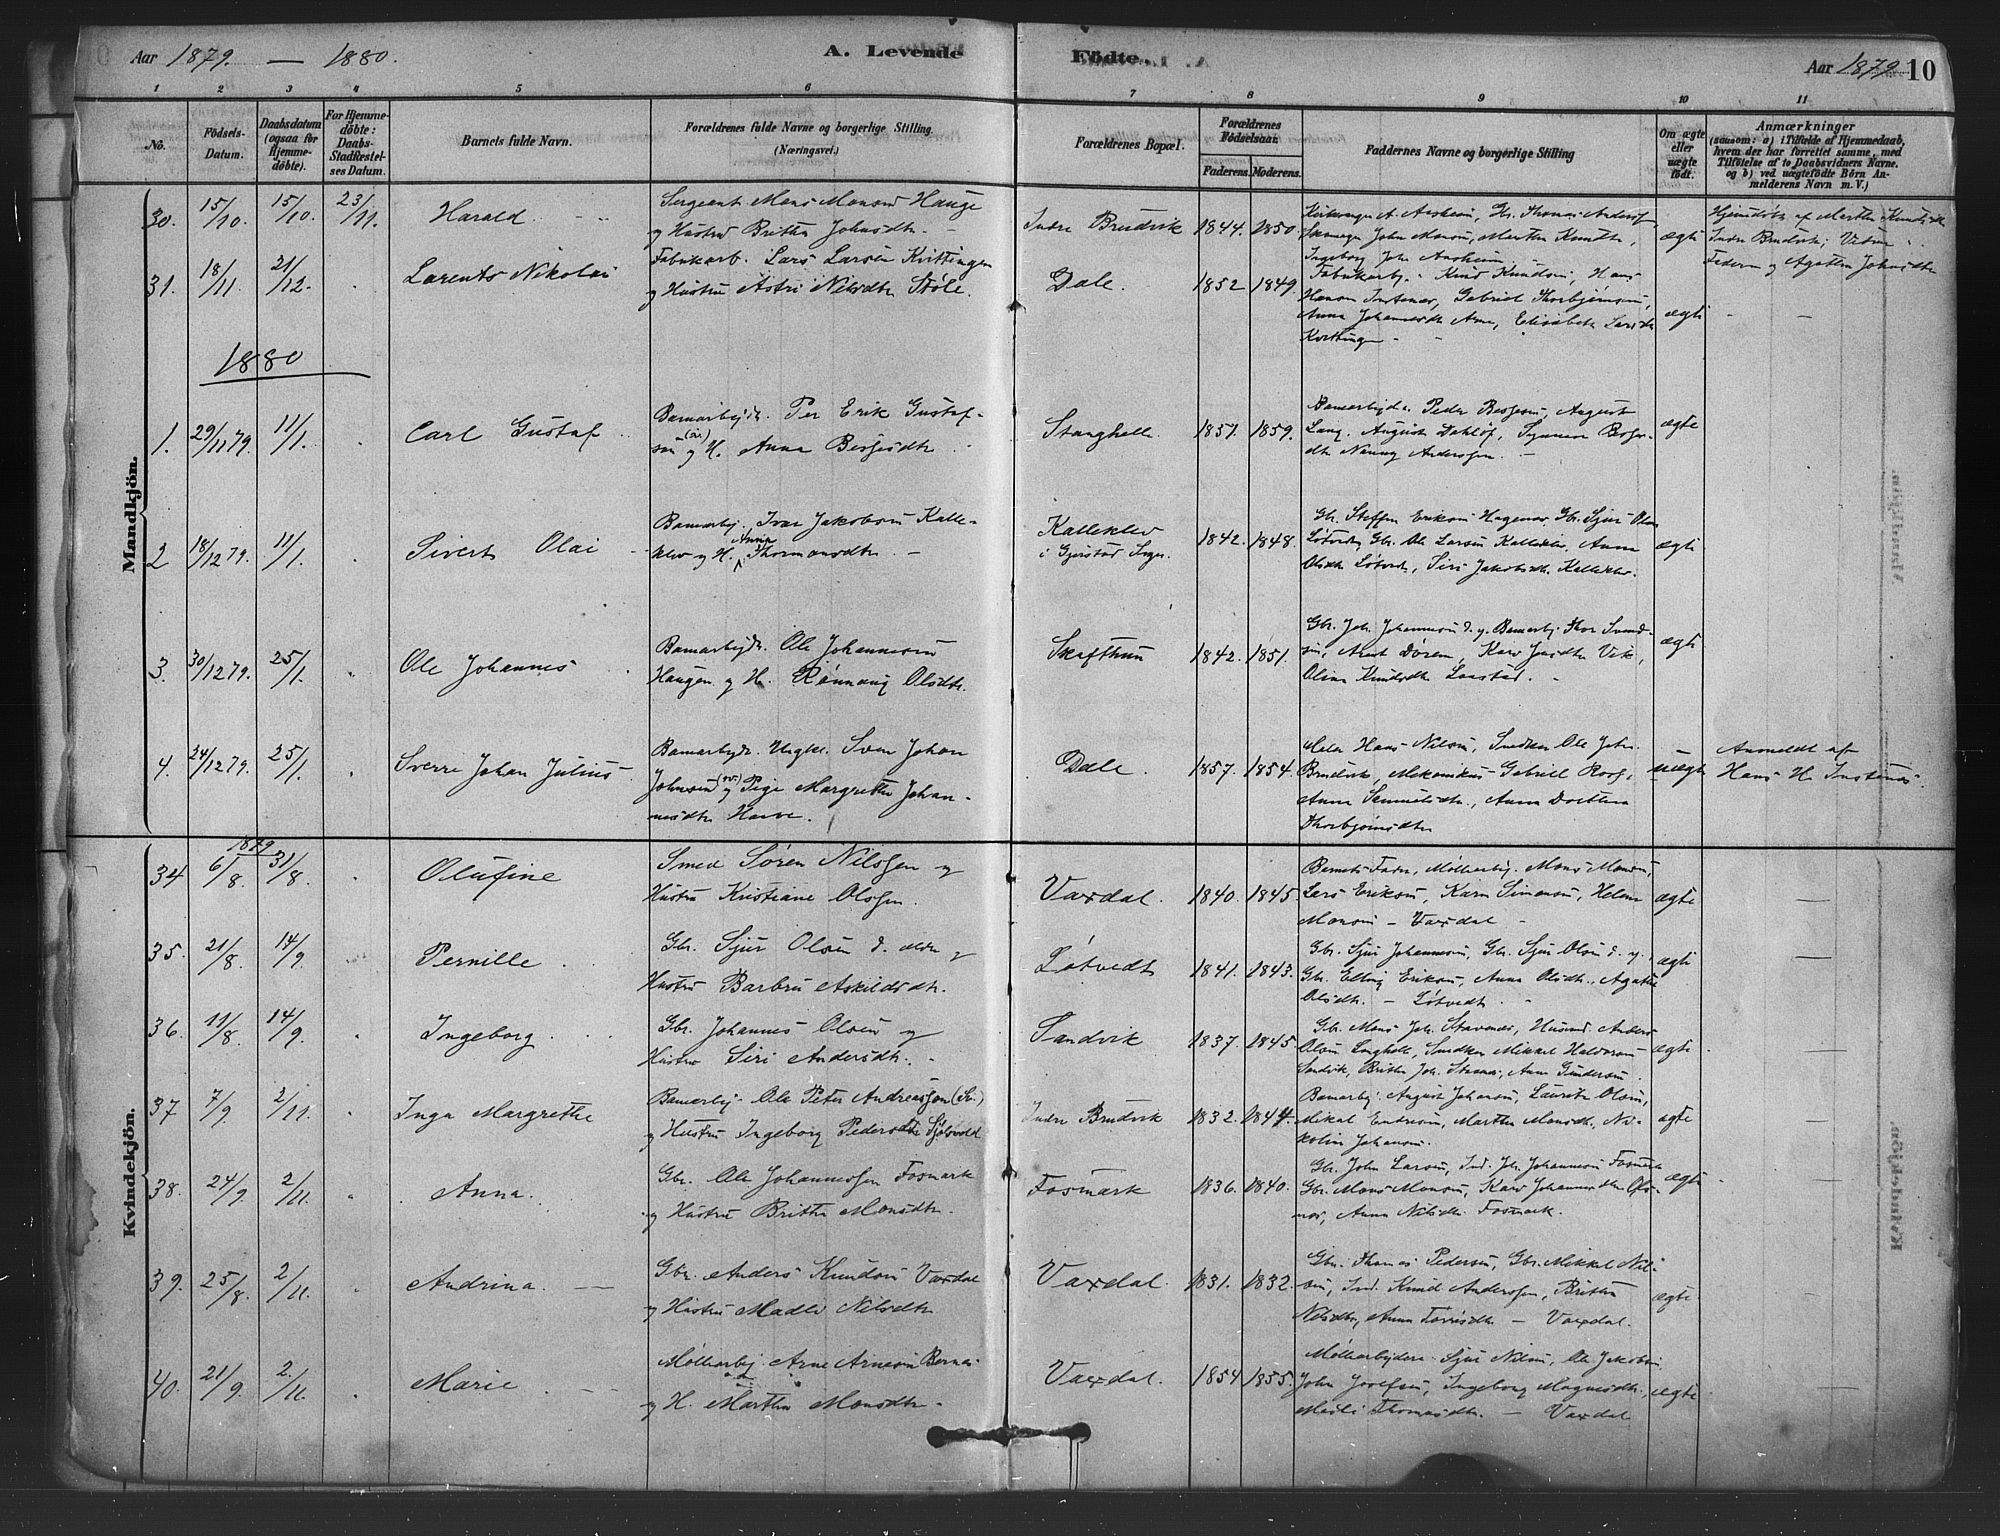 Aar 1879. — 1880.
A. Levende
Födte.
Aar 1879
10
1 2 3 4 5 6 7 8 9 10 11
No.
Födsels-
Datum.
Daabsdatum
(ogsaa for
Hjemme-
döbte).
For Hjemme-
döbte:
Daabs-
Stadfæstel-
ses Datum.
Barnets fulde Navn.
Forældrenes fulde Navne og borgerlige Stilling.
(Næringsvei.)
Forældrenes Bopæl.
Forældrenes
Födselsaar.
Faderens. Moderens.
Faddernes Navne og borgerlige Stilling
Om ægte
eller
uægte
født.
Anmærkninger
(saasom: a) i Tilfælde af Hjemmedaab,
hvem der har forrettet samme, med
Tilföielse af to Daabsvidners Navne.
og b) ved uægtefödte Börn An-
melderens Navn m. V.)
Mandkjön.
30. 15/10 15/10. 23/11. Harald.
Sergeant Mons Monsen Hauge
og Hustru Britha Johnsdtr.
Indre Brudvik 1844. 1850.
Kirkesanger A. Aasheim, Gbr. Thomas Anders.
John Monsen, Martha Knudtr.,
Ingeborg Joh. Aasheim.
ægte
Hjemdøbt af Martha Knudsdtr
Indre Brudvik; Vidner:
Faderen og Agatha Johnsdtr
31. 18/11. 21/12. Larents Nikolai
Fabrikarb. Lars Larsen Kvittingen
og Hustru Astri Nilsdtr Støle.
Dale. 1852 1849.
Fabrikarb. Knud Knudsen, Hans
Hansen Instenæs, Gabriel Thorbjørnsen,
Anna Johannesdtr Arne, Elisabeth Larsdtr
Kvittingen
ægte
1880
1. 29/11 79. 11/1. Carl Gustaf
Banearbejdr. Per Erik Gustaf-
son (sv.) og H. Anna Bergesdtr
Stanghelle 1857. 1859.
Banearbejdr. Peder Bergesen, August
Lang, August Dahlöf, Synneva Berges-
dtr Nanny Andersen.
ægte
2 18/12 79. 11/1. Sivert Olai
Banearbej. Ivar Jakobsen Kalle-
klev og H. Anna Thormonsdtr.
Kalleklev
i Gjerstad Sogn. 1842. 1848.
Gbr. Steffen Eriksen Hagenæs, Gbr. Sjur Olsen
Løtvedt, Gbr. Ole Larsen Kalleklev, Anna
Olsdtr Løtvedt, Siri Jakobsdtr. Kalleklev.
ægte
3. 30/12 79. 25/1. Ole Johannes
Banearbejdr. Ole Johannesen
Haugen og H. Rønnaug Olsdtr.
Skafthun 1842. 1851.
Gbr. Joh. Johannesen d. y. Banearbej Thor Svend-
sen, Arnt Doren, Kari Jonsdtr Vik,
Olina Knudsdtr Laastad.
ægte
4. 24/12 79. 25/1. Sverre Johan Julius
Banearbejdr. Ungk. Sven Johan
Johnsen (sv.) og Pige Margretha Johan-
nesdtr Harve.
Dale. 1857. 1854.
Hans Nilsen, Snedker Ole Joh.
Brudvik, Mekanikus Gabriel Roos,
Anna Samuelsdtr., Anna Dorthea
Thorbjørnsdtr
uægte
Anmeldt af
Hans H. Instenæs
Kvindekjön.
1879
34 6/8. 31/8. Olufine
Smed Søren Nilssen og
Hustru Kristiane Olsen.
Vaxdal. 1840. 1845.
Barnets Fader, Møllearbej. Mons Monsen,
Lars Eriksen, Karen Simonsen, Helena
Monsen — Vaxdal
ægte
35. 21/8. 14/9. Pernille
Gbr. Sjur Olsen d. eldre og
Hustru Barbru Askildsdtr.
Løtvedt 1841. 1843.
Gbr. Sjur Johannesen, Gbr. Sjur Olsen d. y.,
Gbr. Elling Eriksen, Anna Olsdtr., Agatha
Olsdtr. — Løtvedt
ægte
36. 11/8. 14/9. Ingeborg
Gbr. Johannes Olsen og
Hustru Siri Andersdtr.
Sandvik 1837. 1845.
Gbr. Mons Joh. Stavenæs, Husmd. Anders
Olsen Langhelle, Snedker Mikkel Haldorsen
Sandvik, Britha Joh. Stavnæs, Anna Gundersen.
ægte
37 7/9. 2/11. Inga Margrethe
Banearbej. Ole Peter Andreassen (Sv.)
og Hustru Ingeborg Pedersdtr Sjølsvold
Indre Brudvik 1832. 1844.
Banearbej August Johansen, Lauritz Olsen,
Mikal Endresen, Martha Monsdtr., Ni-
kolin Johansen.
ægte
38. 24/9 2/11. Anna.
Gbr. Ole Johannessen Fosmark
og Hustru Britha Monsdtr.
Fosmark 1836. 1840.
Gbr. John Larsen, Ind. Joh. Johannesen Fosmark
Gbr. Mons Monsen, Kari Johannesdtr Ols-
næs, Anna Nilsdtr. Fosmark.
ægte
39. 25/8. 2/11. Andrina.
Gbr. Anders Knudsen Vaxdal
og Hustru Madli Nilsdtr
Vaxdal. 1831. 1832.
Gbr. Thomas Pedersen, Gbr. Mikkel Nil-
sen, Ind. Knud Anderssen, Britha
Nilsdtr, Anna Torrisdtr. — Vaxdal.
ægte
40. 21/9. 2/11. Marie
Møllearbej. Arne Arnesen Bernes
og H. Martha Monsdtr.
Vaxdal. 1854 1855.
Møllearbejdere Sjur Nilsen, Ole Jakobsen,
John Josefsen, Ingeborg Magnesdtr.
Madli Thomasdtr. — Vaxdal
ægte